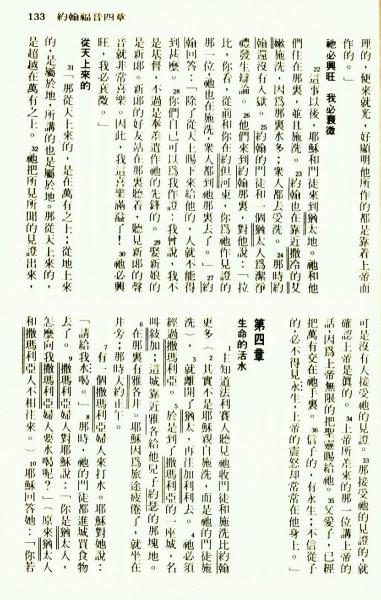 133　約翰福音四章
理的，便來就光，好顯明他所作的都是靠着上帝而
作的。」
祂必興旺　我必衰微
22這事以後，耶穌和門徒來到猶太地。祂和他
們住在那裏，並且施洗。23約翰也在靠近撒冷的艾
嫩施洗，因爲那裏水多；衆人都去受洗。24那時約
翰還沒有入獄。25約翰的門徒和一個猶太人爲潔淨
禮發生辯論。26他們來到約翰那裏，對他說：「拉
比，你看，從前和你在約但河東，你爲祂作見證的
那一位，祂也在施洗，衆人都到祂那裏去了。」27約
翰回答：「除了從天上賜下來給他的，人就不能得
到甚麼。28你們自己可以爲我作證：我曾說，我不
是基督，不過是奉差遣作祂的先鋒的。29娶新娘的
是新郎。新郎的好友站在那裏聽着，聽見新郎的聲
音就非常喜樂。因此，我這喜樂滿溢了！30祂必興
旺，我必衰微。」
從天上來的
31「那從天上來的，是在萬有之上；從地上來
的，是屬於地，所講的也是屬於地。那從天上來的，
是超越在萬有之上。32祂把所見所聞的見證出來，
可是沒有人接受祂的見證。33那接受祂的見證的，就
確認上帝是眞的。34上帝所差來的那一位講上帝的
話，因爲上帝無限的把聖靈賜給祂。35父愛子，已經
把萬有交在祂手裏。36信子的，有永生；不信從子
的，必不得見永生，上帝的震怒卻常常在他身上。」
第四章
生命的活水
1主知道法利賽人聽見祂收門徒和施洗比約翰
更多（2其實不是耶穌親自施洗，而是祂的門徒施
洗），3就離開了猶太，再往加利利去。4祂必須
經過撒瑪利亞。5於是到了撒瑪利亞的一座城，名
叫敍加；這城靠近雅各給他兒子約瑟的那塊地。
6在那裏有雅各井。耶穌因爲旅途疲倦了，就坐在
井旁；那時大約正午。
7有一個撒瑪利亞婦人來打水。耶穌對她說：
「請給我水喝。」8那時，祂的門徒都進城買食物
去了。9撒瑪利亞婦人對耶穌說：「你是猶太人，
怎麼向我撒瑪利亞婦人要水喝呢？」（原來猶太人
和撒瑪利亞人不相往來。）10耶穌回答她：「你若